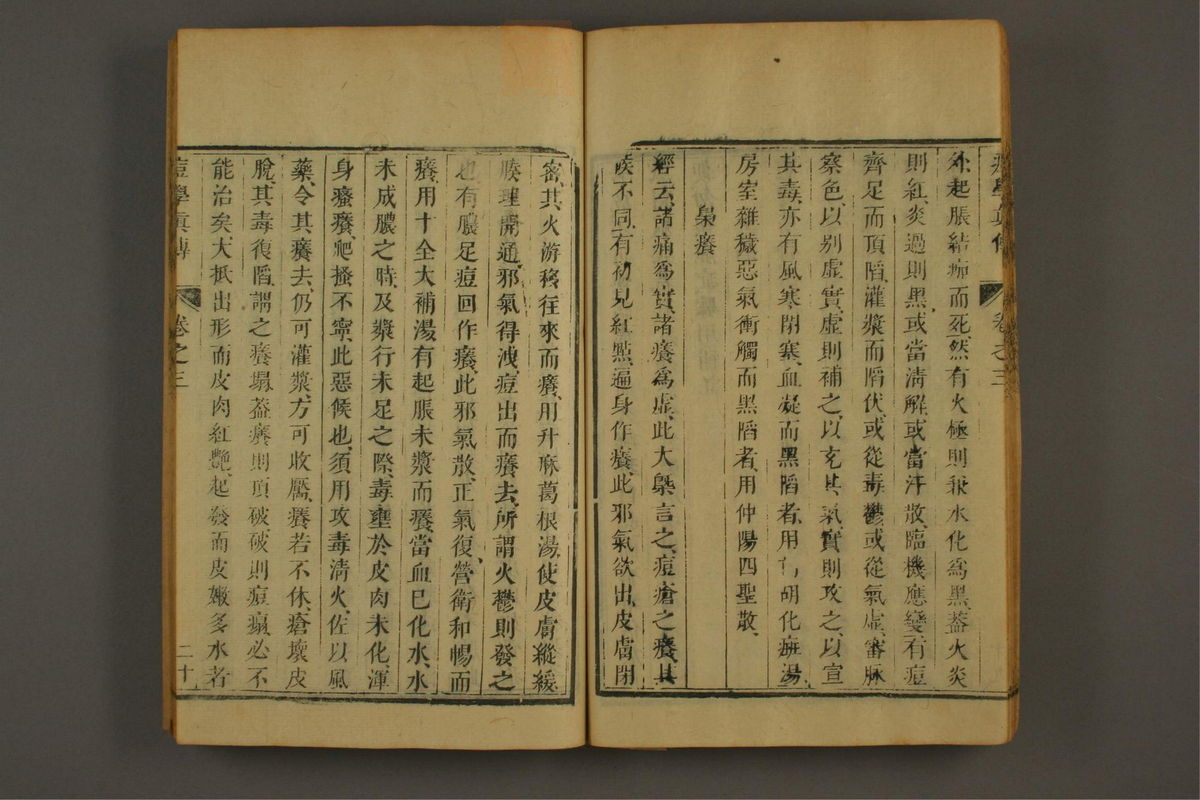 痘學眞傳 卷之三
外起脹結痂而死然有火極則兼水化爲黑蓋火炎
則紅炎過則黑或當淸解或當汗散臨機應變有痘
齊足而頂陷灌漿而陷伏或從毒鬱或從氣虛審脉
察色以别虛實虛則補之以充其氣實則攻之以宣
其毒亦有風寒閉塞血凝而黑陷者用胡化癍湯
房室雜穢惡氣衝觸而黑陷者用仲陽四聖散
㿃癢
經云諸痛爲實諸癢爲虛此大槩言之痘瘡之癢其
候不同有初見紅㸃遍身作癢此邪氣欲出皮膚閉
密其火游移往來而癢用升麻葛根湯使皮膚縱緩
腠理開通邪氣得洩痘出而癢去所謂火鬱則發之
也有膿足痘回作癢此邪氣散正氣復營衛和暢而
癢用十全大補湯有起脹未漿而癢當血巳化水水
未成膿之時及漿行未足之際毒壅於皮肉未化渾
身瘙癢爬搔不寧此惡候也須用攻毒淸火佐以風
藥令其癢去仍可灌漿方可收靨癢若不休瘡壞皮
脫其毒復陷謂之癢塌蓋癢則頂破破則痘塌必不
能治矣大抵出形而皮肉紅艷起發而皮嫩多水者
痘學眞傳 卷之三 二十